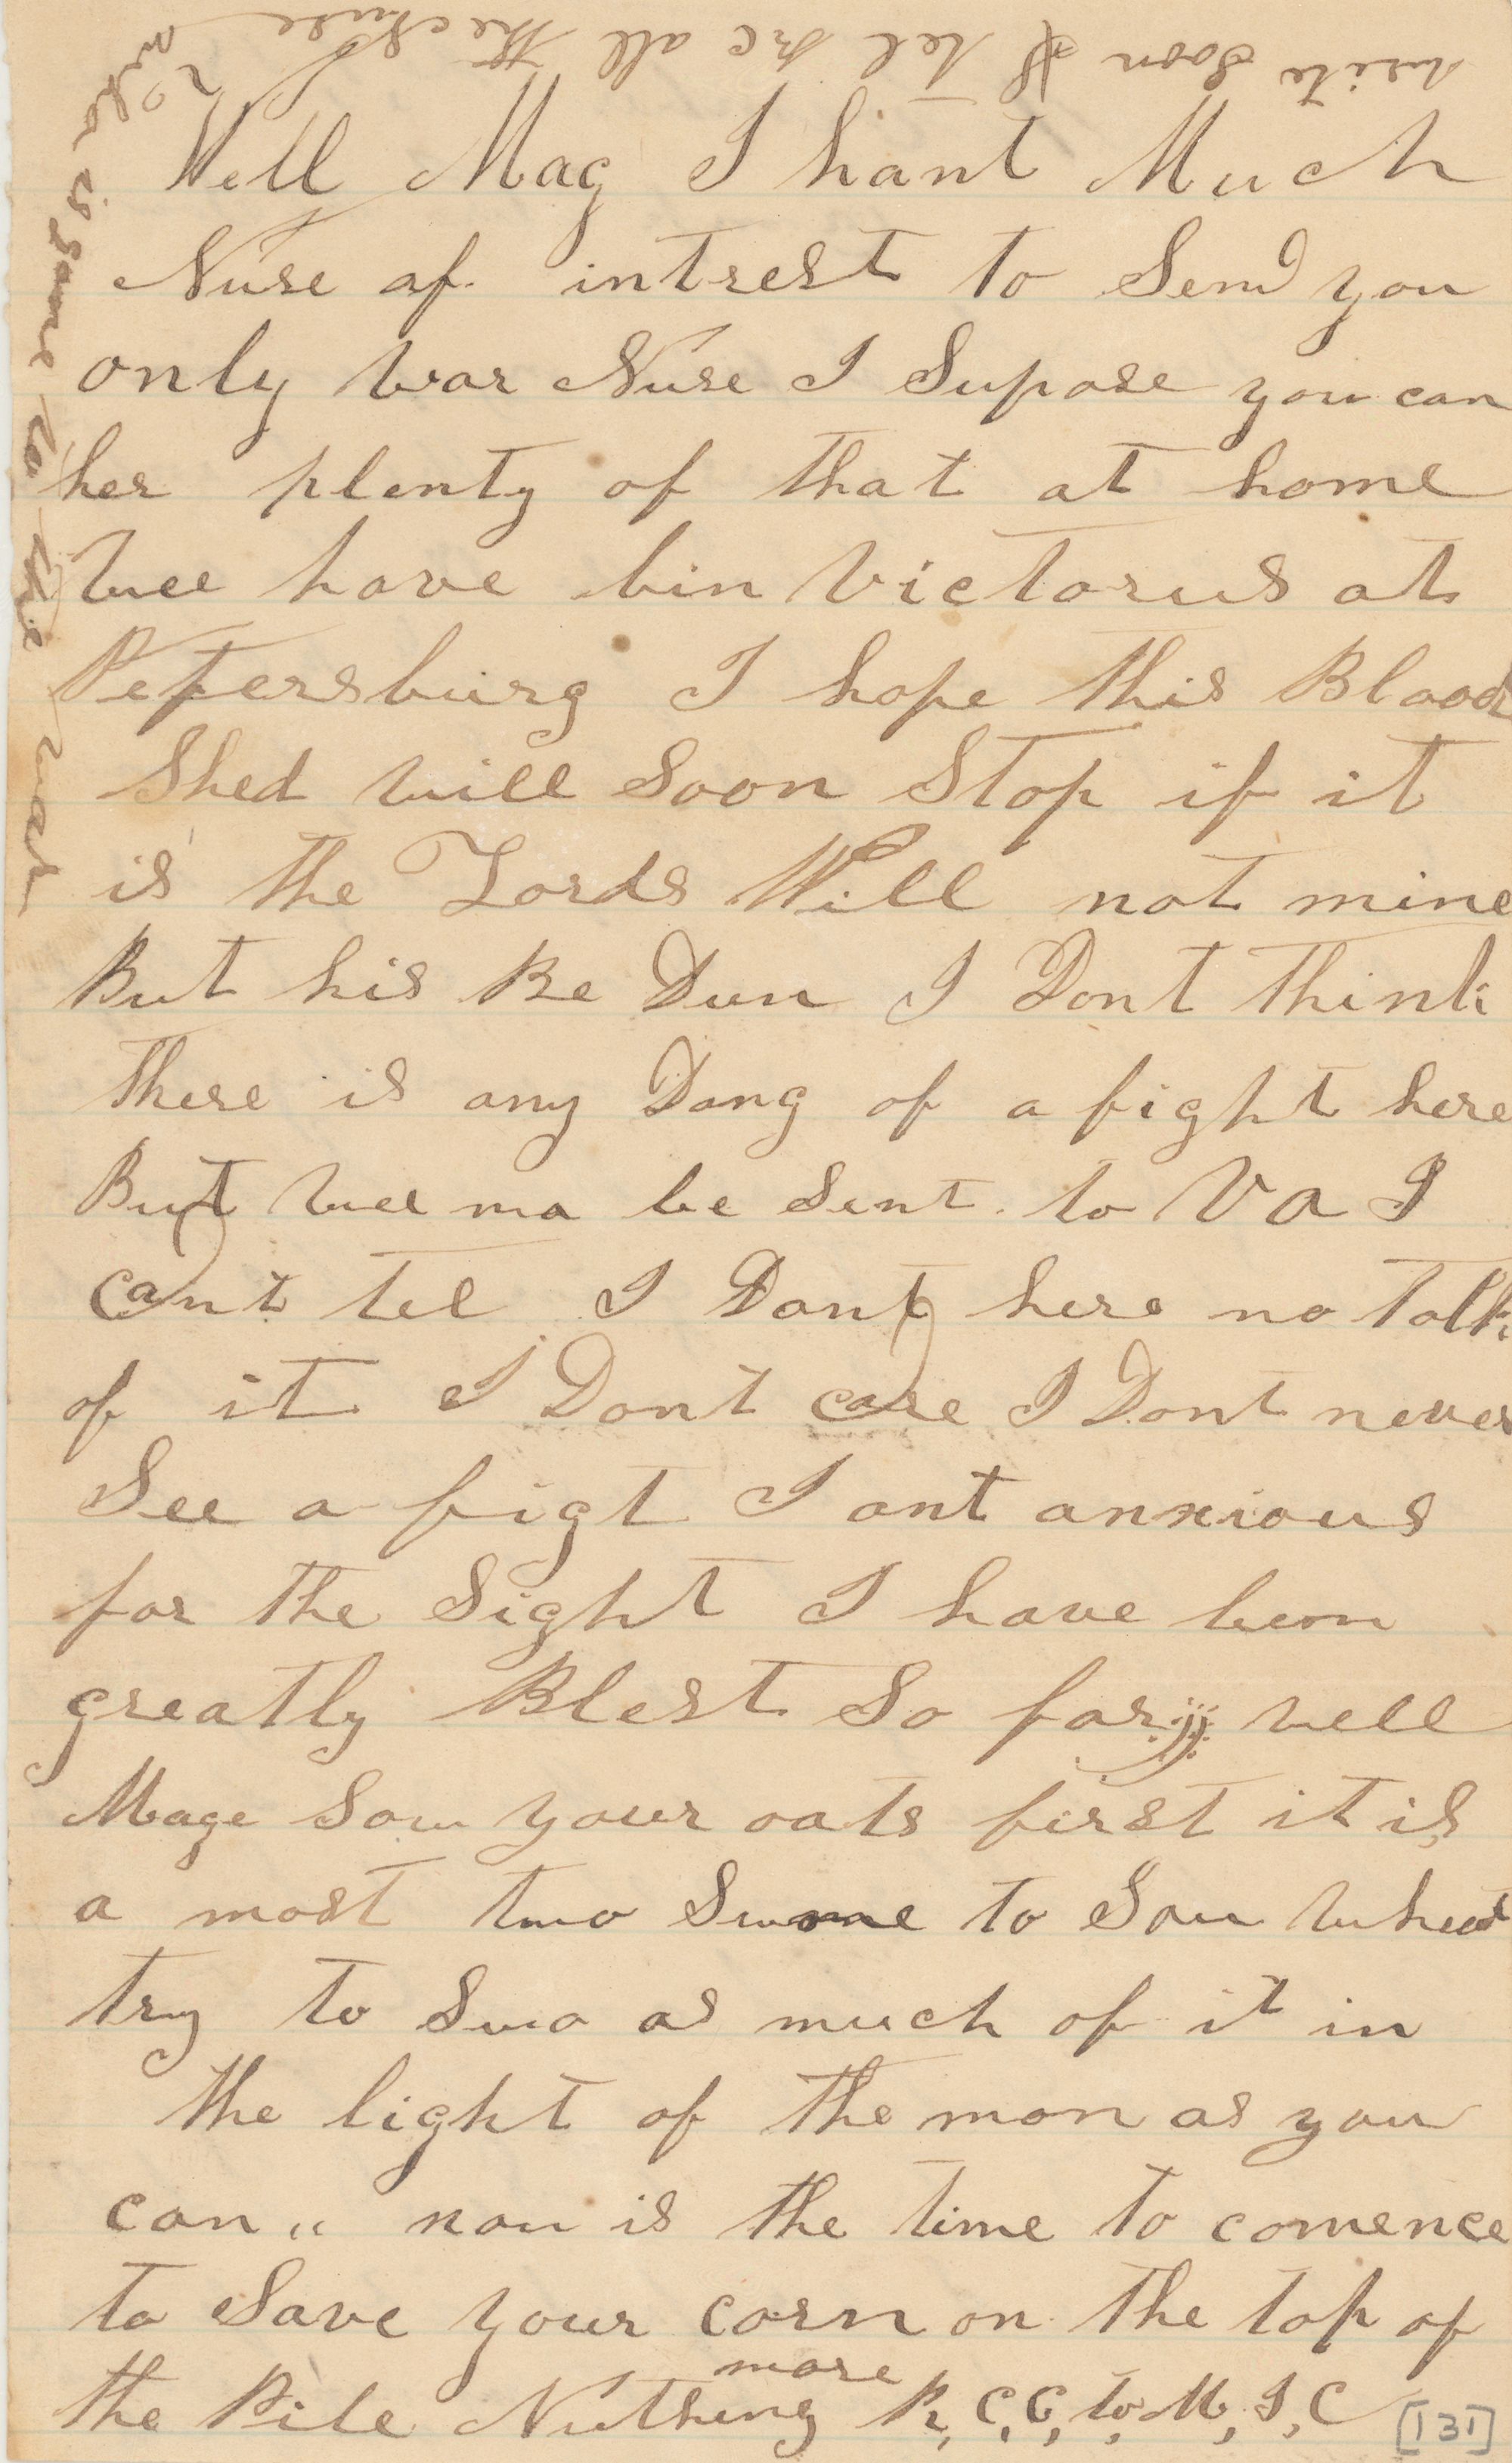 write soon & tel me all the nuse
who is gone to the war
Well Mag I hant Much
Nuse of intrest to Send you
only war Nuse I Supose you can
her plenty of that at home
wee have bin Victorus at
Petersburg I hope this Blood
Shed will Soon Stop if it
is the Lords Will not mine
But his Be Dun I Dont think
there is any Dang of a fight here
But wee ma be Sent to VA I
cant tel I Dont here no talk
of it I Dont care I Dont never
See a figt I ant anxious
for the Sight I have ben
greatly Blest So far well
Mage Sow your oats first it is
a most two to Sow wheat
try to Swo as much of it in
the light of the mon as you
can " now is the time to comence
to Save your corn on the top of
the Pile Nuthing more R, C, C, to, M, I, C
[131]